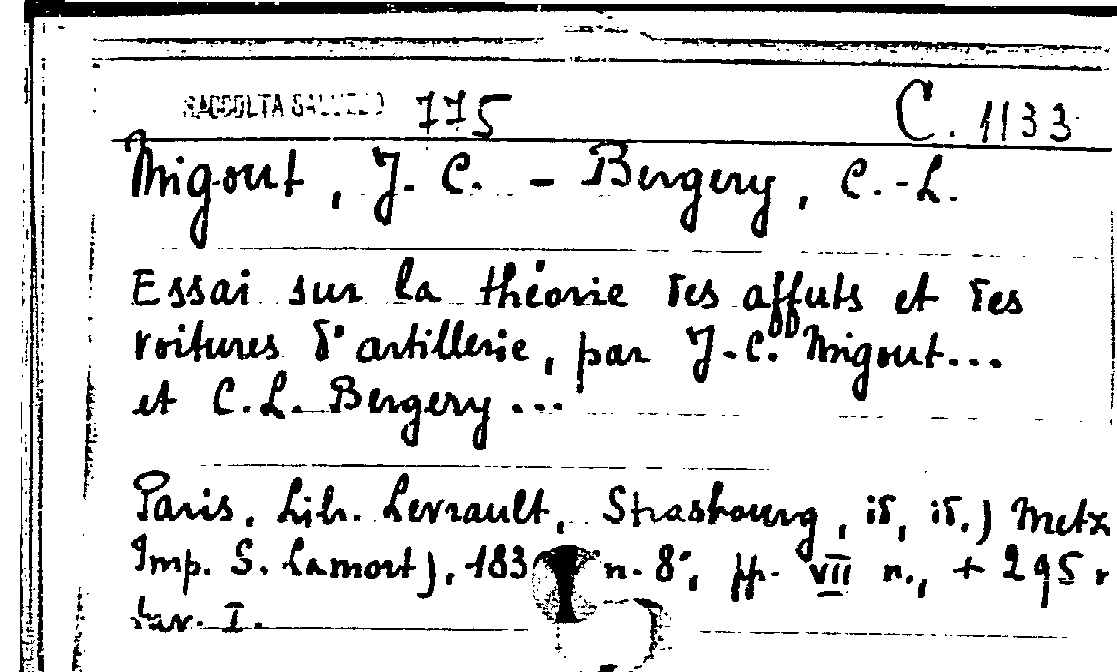 RACCOLTA 775 C. 1133
Migout, J. C. - Bergery, C.-L.
Essai sur la théorie des affuts et des
voitures d'artillerie, par J.-C. Migout...
et C.L. Bergery...
Paris, Lib. Levrault, Strasbourg, id, id.) Metz
Imp. S. Lamort), 183 n. 8°, pp. VII n., + 295
tav. I.